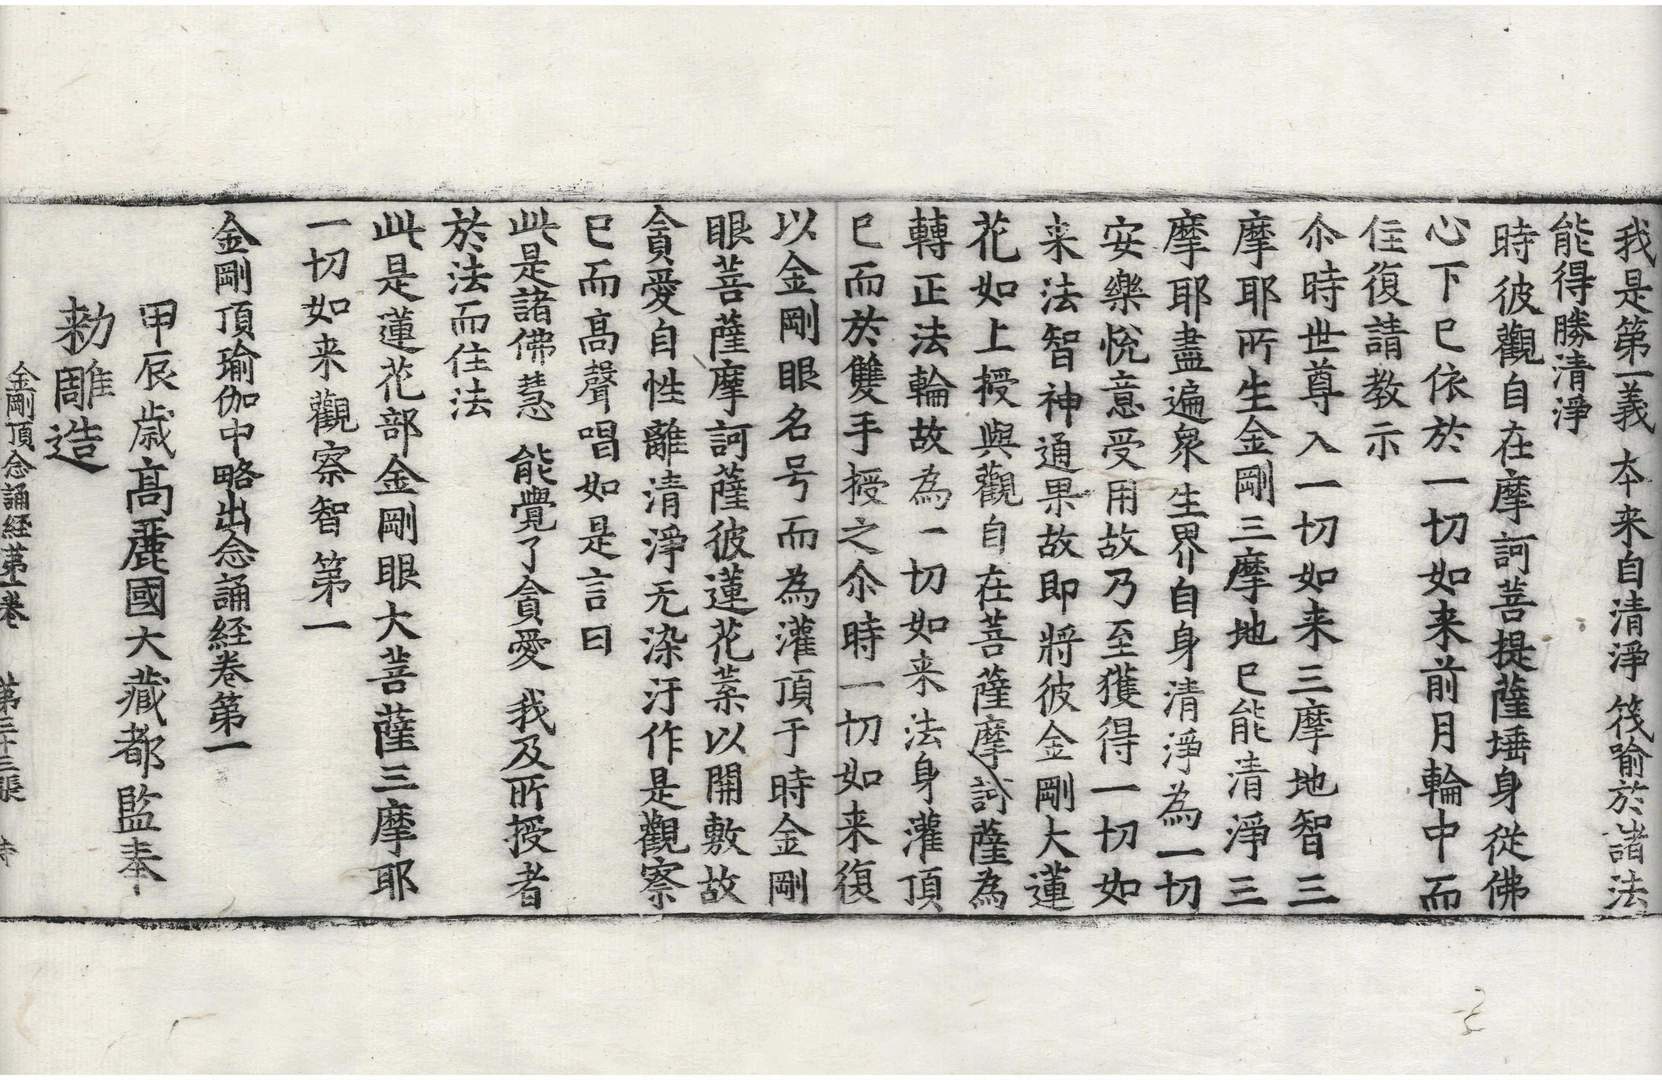 我是第一義 本来自清淨 筏喻於諸法
能得勝清淨
時彼觀自在摩訶菩提薩埵身従佛
心下已依於一切如来前月輪中而
住復請教示
尒時世尊入一切如来三摩地智三
摩耶所生金剛三摩地已能清淨三
摩耶盡遍衆生界自身清淨為一切
安樂悅意受用故乃至獲得一切如
来法智神通果故即將彼金剛大蓮
花如上授與觀自在菩薩摩訶薩為
轉正法輪故為一切如来法身灌頂
已而於雙手授之尒時一切如来復
以金剛眼名号而為灌頂于時金剛
眼菩薩摩訶薩彼蓮花葉以開敷故
貪愛自性離清淨无染汙作是觀察
已而高聲唱如是言曰
此是諸佛慧 能覺了貪愛 我及所授者
於法而住法
此是蓮花部金剛眼大菩薩三摩耶
一切如来觀察智第一
金剛頂瑜伽中略出念誦経卷第一
甲辰歲高麗國大藏都監奉
勅雕造
金剛頂念誦経第一卷 第三十三張